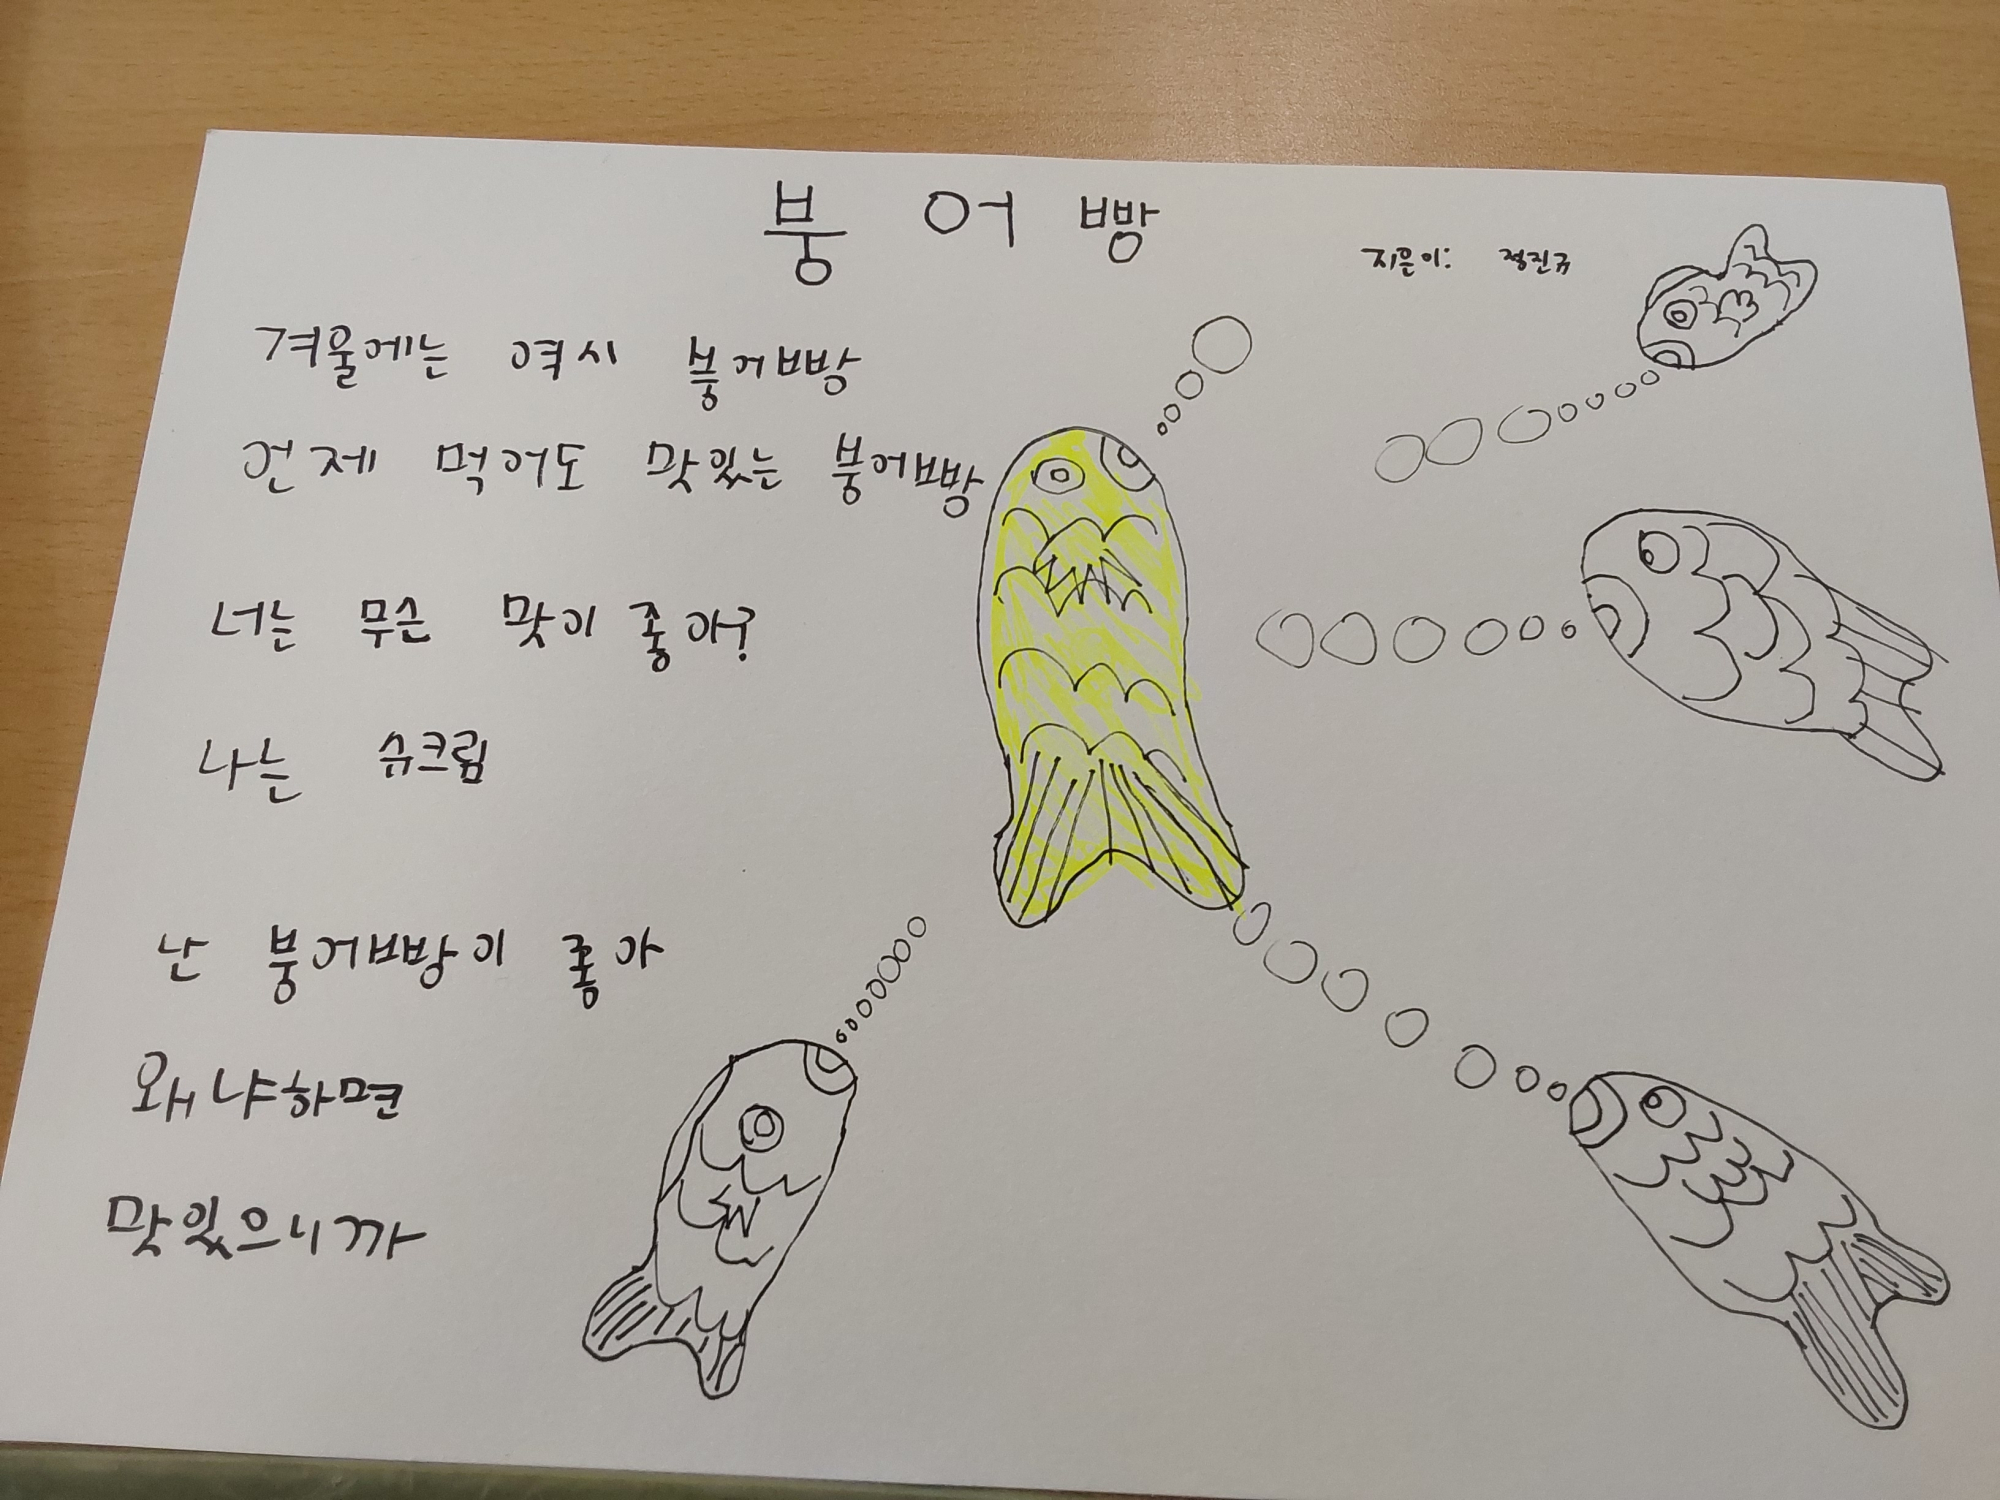 붕어빵
지은이: 정진규
겨울에는 역시 붕어빵
언제 먹어도 맛있는 붕어빵
너는 무슨 맛이 좋아?
나는 슈크림
난 붕어빵이 좋아
왜냐하면
맛있으니까